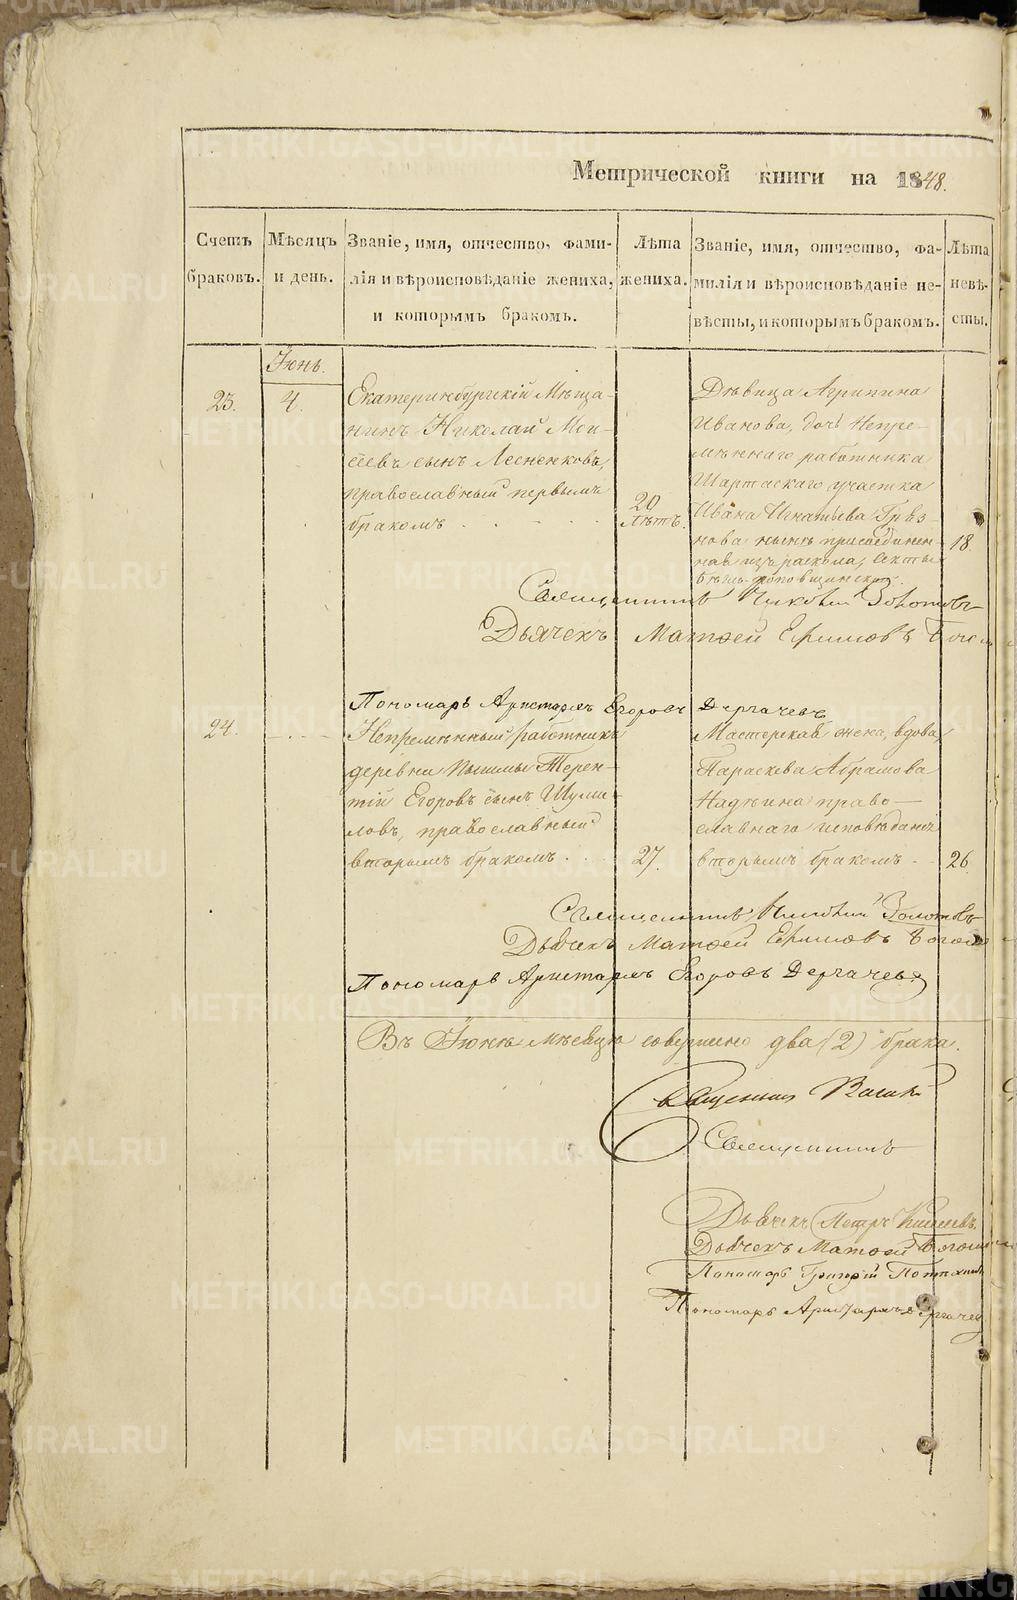 Метрической книги на 1848.
Счетъ браковъ.
Мѣсяцъ и день.
Званіе, имя, отчество, фами-
лія и вѣроисповѣданіе жениха,
и которымъ бракомъ.
Лѣта
жениха.
Званіе, имя, отчество, фа-
милія и вѣроисповѣданіе не-
вѣсты, и которымъ бракомъ.
Лѣта
невѣ-
сты.
Іюнь.
23.
4.
Екатеринбургскій Мѣща-
нинъ Николай Мои-
сеевъ сынъ Лесненковъ,
православный первымъ
бракомъ
20
лѣтъ.
Дѣвица Агрипина
Иванова, дочь Непре-
мѣннаго работника
Шарташскаго участка
Ивана Игнатьева Гряз-
нова нынѣ присоединен-
ная изъ раскола, Секты
18.
Священникъ Николай Золотовъ
Дьячекъ Матѳей Ефимовъ
Пономарь Аристархъ Егоровъ Дергачевъ
24.
Непремѣнный работникъ
деревни Пышмы Терен-
тій Егоровъ сынъ Шуми-
ловъ, православный
вторымъ бракомъ.
27.
Мастерская жена, вдова,
Параскева Абрамова
Надѣина право-
славнаго исповѣданія
вторымъ бракомъ
26.
Священникъ Николай Золотовъ
Дьячекъ Матѳей Ефимовъ
Пономарь Аристархъ Егоровъ Дергачевъ
Въ Іюнѣ мѣсяцѣ совершено два (2) брака.
Священникъ
Священникъ
Дьячекъ Петръ
Дьячекъ Матѳей
Пономарь Григорій
Пономарь Аристархъ Дергачев
METRIKI.GASO-URAL.RU